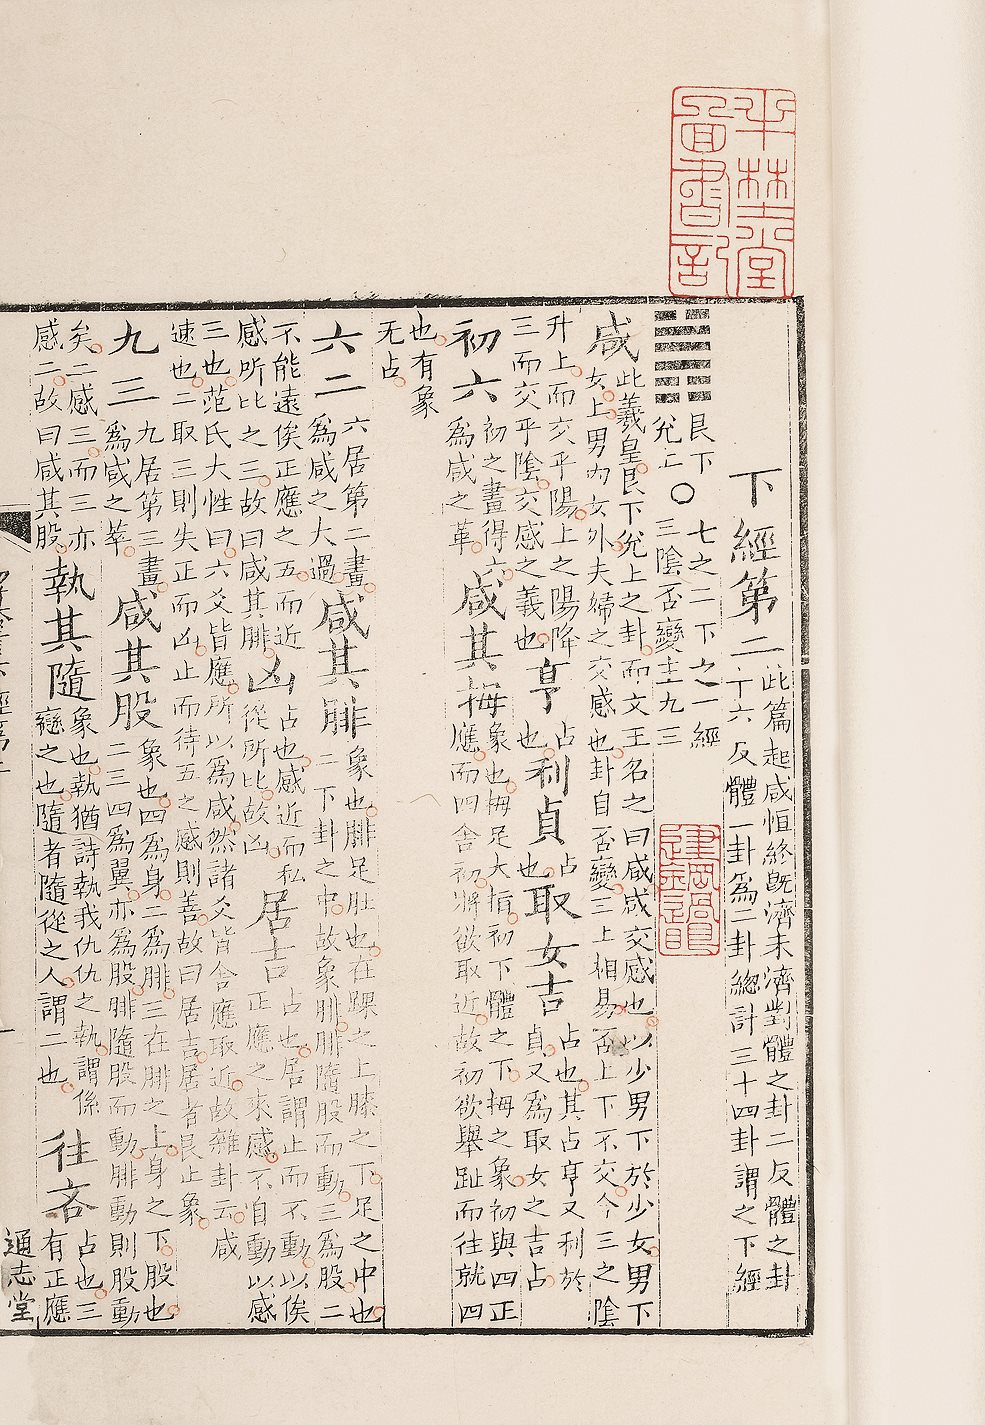 半埜堂圖書記
下經第二 此篇起咸恒終旣濟未濟對體之卦二反體之卦
十六反體一卦爲二卦總計三十四卦謂之下經
艮下 七之二下之一經
兌上 ○ 三陰否變主九三
咸 此羲皇艮下兌上之卦而文王名之曰咸咸交感也以少男下於少女男下
女上男內女外夫婦之交感也卦自否變三上相易否上下不交今三之陰
升上而交乎陽上之陽降
三而交乎陰交感之義也 亨 占也 利貞 占也 取女吉 占也其占亨又利於
貞又爲取女之吉占
初六 初之畫得六
爲咸之革 咸其拇 象也拇足大指初下體之下拇之象初與四正
應而四舍初將欲取近故初欲舉趾而往就四
也有象
无占
六二 六居第二畫
爲咸之大過 咸其腓 象也腓足肚也在踝之上膝之下足之中也
二下卦之中故象腓腓隨股而動三爲股二
不能遠俟正應之五而近
感所比之三故曰咸其腓 凶 占也感近而私
從所比故凶 居吉 占也居謂止而不動以俟
正應之來感不自動以感
三也范氏大性曰六爻皆應所以爲咸然諸爻皆舍應取近故雜卦云咸
速也二取三則失正而凶止而待五之感則善故曰居吉居者艮止象
九三 九居第三畫
爲咸之萃 咸其股 象也四爲身二爲腓三在腓之上身之下股也
二三四爲巽亦爲股腓隨股而動腓動則股動
矣二感三而三亦
感二故曰咸其股 執其隨 象也執猶詩執我仇仇之執謂係
戀之也隨者隨從之人謂二也 往吝 占也三
有正應
通志堂